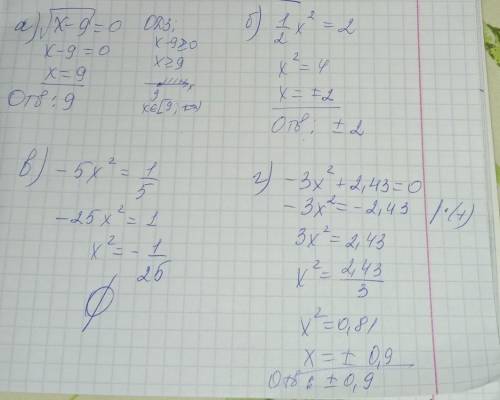 а) √x-9 = 0
x-9 = 0
x = 9
Отв: 9
ОДЗ:
x-9≥0
x≥9
9 x
x∈[9; +∞)
б) 1/2 x² = 2
x² = 4
x = ±2
Отв: ±2
в) -5x² = 1/5
-25x² = 1
x² = -1/25
∅
г) -3x² + 2,43 = 0
-3x² = -2,43 |·(-1)
3x² = 2,43
x² = 2,43/3
x² = 0,81
x = ± 0,9
Отв: ± 0,9